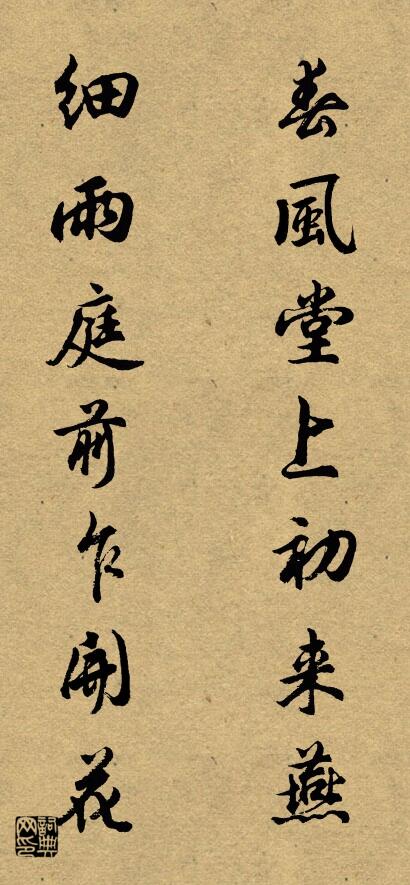 春風堂上初来燕
細雨庭前乍開花
詞典网印